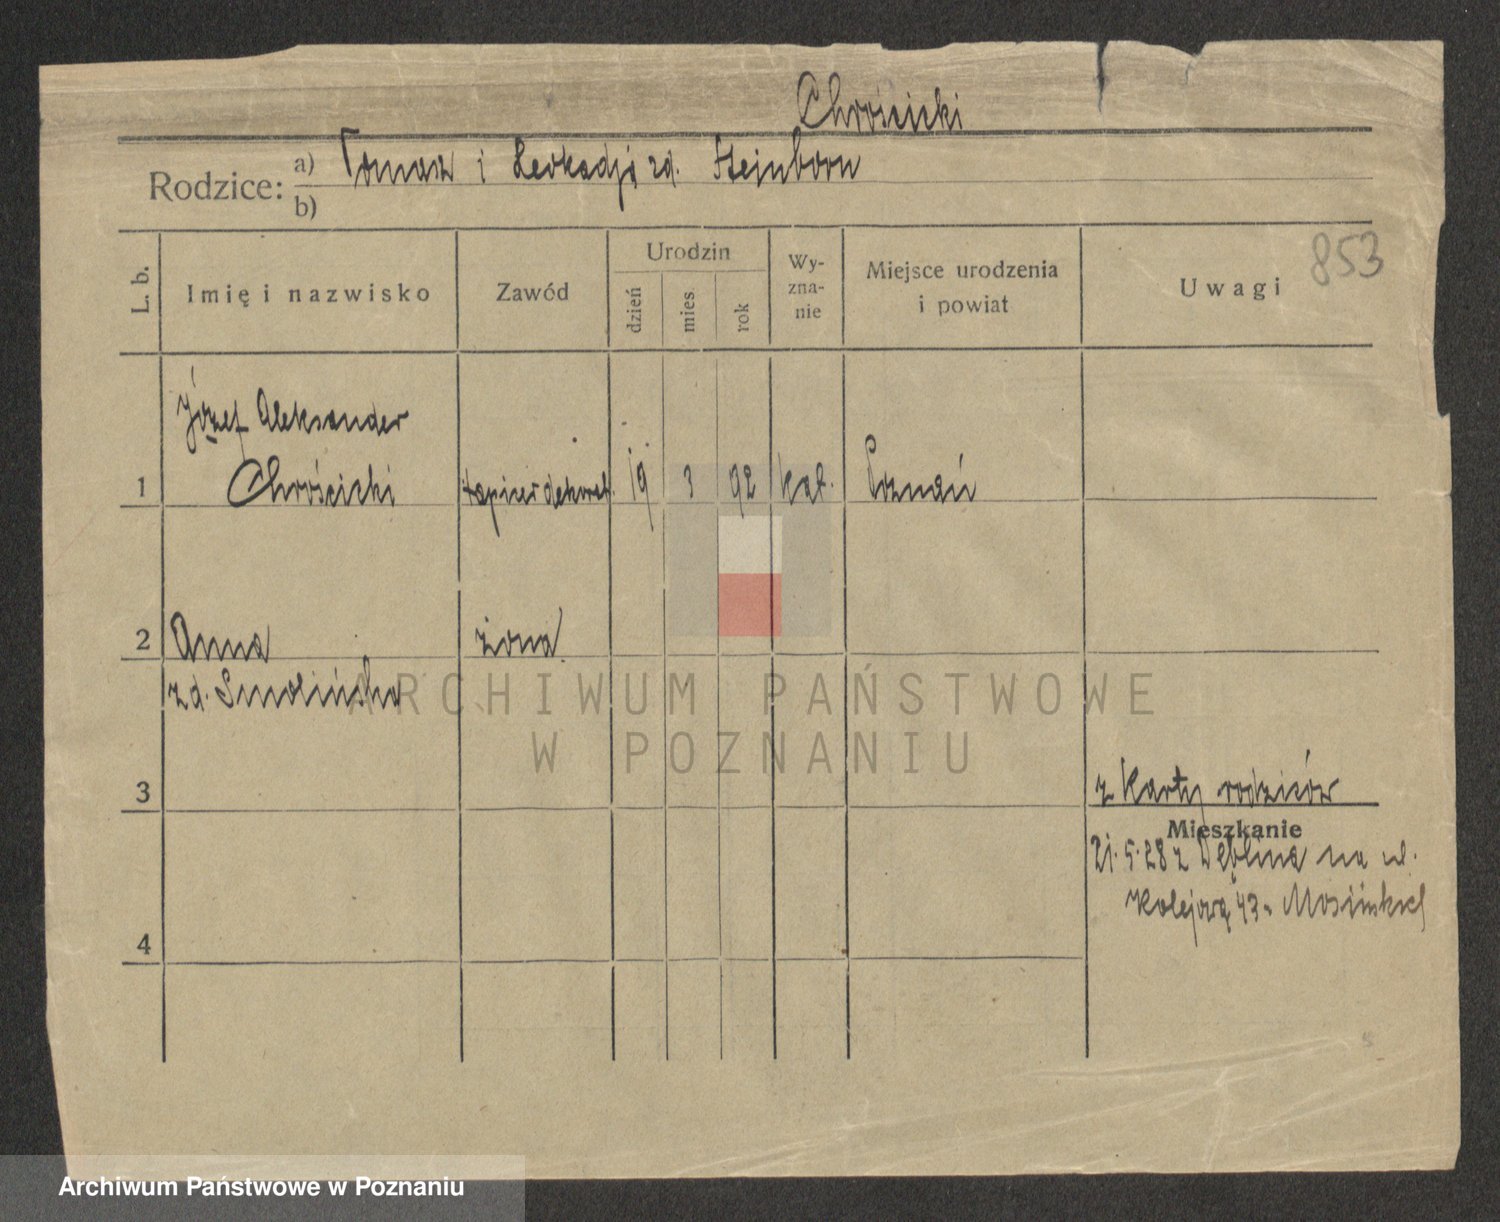 Chróścicki
Rodzice: a) Tomasz i Leokadja zd. Stejnborn
b)
853
L. b. Imię i nazwisko Zawód Urodzin dzień mies. rok Wy-zna-nie Miejsce urodzenia i powiat Uwagi
Józef Aleksander
1 Chróścicki tapicer dekorat. 19 3 92 kat. Poznań
2 Anna żona
zd. Smolińska
3 z Karty rodziców
Mieszkanie
21.5.28 z Dęblina na ul.
Kolejową 43 u Mosińskich
4
ARCHIWUM PAŃSTWOWE
W POZNANIU
Archiwum Państwowe w Poznaniu